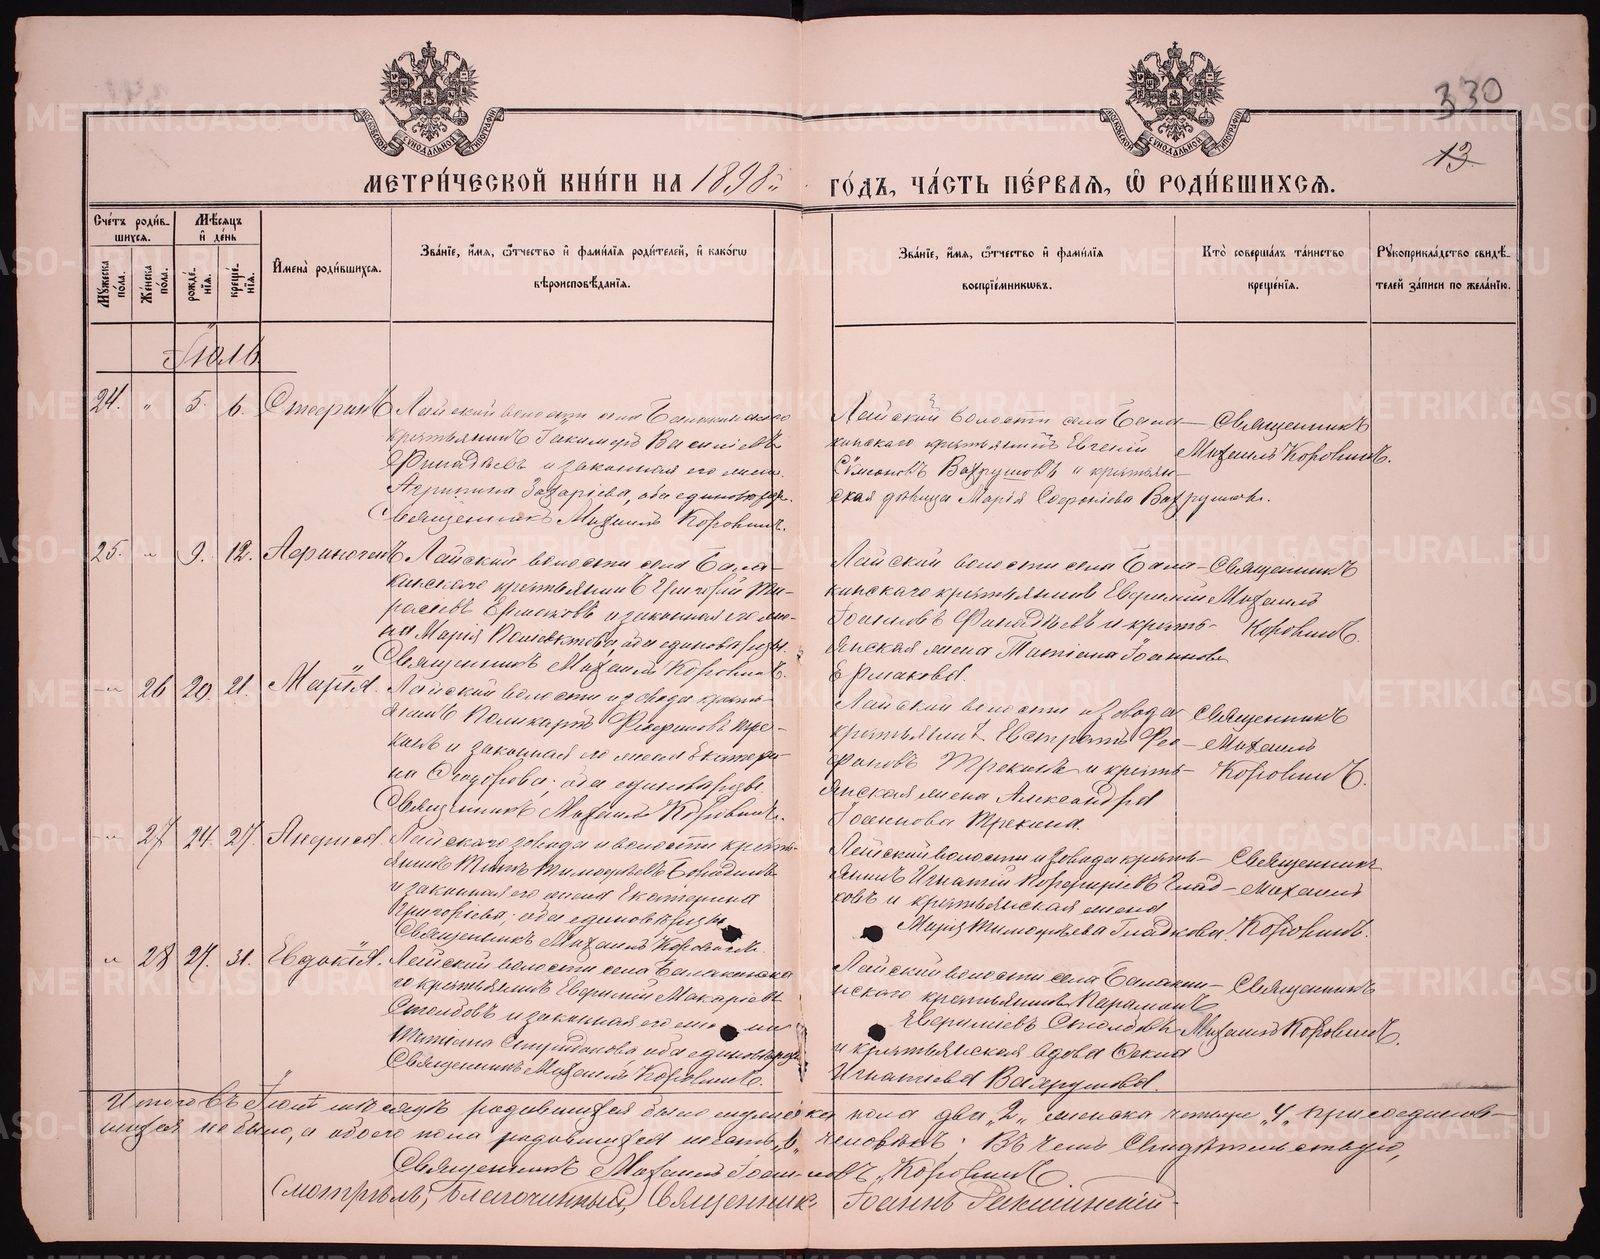 330
13
МЕТРИ́ЧЕСКОЙ КНИ́ГИ НА 1898й ГО́ДЪ, ЧА́СТЬ ПЕ́РВАЯ, Ѡ РОДИ́ВШИХСЯ.
Сче́тъ роди́вшихся.
Мѣ́сяцъ и де́нь
Му́жеска по́ла.
Же́неска по́ла.
рожде́нія.
креще́нія.
Имена̀ роди́вшихся.
Зва́ніе, и́мя, о́тчество и фами́лія роди́телей, и како́гѡ
вѣроисповѣ́данія.
Зва́ніе, и́мя, о́тчество и фами́лія
воспріе́мникѡвъ.
Кто̀ соверша́лъ та́инство
креще́нія.
Рукоприкла́дство свидѣ́телей за́писи по жела́нію.
Іюль
24. " 5. 6. Стефанъ
Лайской волости села Балакинскаго
крестьянинъ Іакимъ Васильевъ
и законная его жена
Агрипина Захаріева, оба единовѣр.
Священникъ Михаилъ Коровинъ.
Лайской волости села Бала-
кинскаго крестьянинъ Евгеній
Симоновъ Вахрушовъ и крестьян-
ская дѣвица Марія Вахрушова.
Священникъ
Михаилъ Коровинъ.
25. " 9. 12. Афиногенъ
Лайской волости села Бала-
кинскаго крестьянинъ Григорій Та-
расовъ Ермаковъ и законная его же-
на Марія, оба единовѣрцы.
Священникъ Михаилъ Коровинъ.
Лайской волости села Бала-
кинскаго крестьянинъ Евфимій
Іоанновъ и кресть-
янская жена Татіана Іоаннова
Ермакова.
Священникъ
Михаилъ
Коровинъ.
" 26 20 21. Марія.
Лайской волости и завода кресть-
янинъ Поликарпъ Тре-
кинъ и законная его жена Екатери-
на Ѳеодорова; оба единовѣрцы.
Священникъ Михаилъ Коровинъ.
Лайской волости и завода
крестьянинъ Евстратъ
Трекинъ и кресть-
янская жена Александра
Іоаннова Трекина.
Священникъ
Михаилъ
Коровинъ.
" 27 24. 27. Анфиса
Лайскаго завода и волости кресть-
янинъ Титъ Тимофеевъ Бородинъ
и законная его жена Екатерина
Григоріева; оба единовѣрцы.
Священникъ Михаилъ Коровинъ.
Лайской волости и завода кресть-
янинъ Игнатій Порфиріевъ Глад-
ковъ и крестьянская жена
Марія Тимофеева Гладкова.
Священникъ
Михаилъ
Коровинъ.
" 28 27. 31. Евдокія.
Лайской волости села Балакинска-
го крестьянинъ Евфимій Макаріевъ
Столбовъ и законная его жена
Татіана оба единовѣрцы
Священникъ Михаилъ Коровинъ.
Лайской волости села Балаки-
нскаго крестьянинъ Парамонъ
Евфиміевъ Столбовъ
и крестьянская вдова
Игнатіева Вахрушова.
Священникъ
Михаилъ Коровинъ.
Итого въ Іюлѣ мѣсяцѣ родившихся было мужеска пола два „2„ женска четыре „4„ присоединив-
шихся не было, а обоего пола родившихся человѣкъ. Въ чемъ свидѣтельствую,
Священникъ Михаилъ Іоанновъ Коровинъ.
Смотрѣлъ, Благочинный, Священникъ Іоаннъ